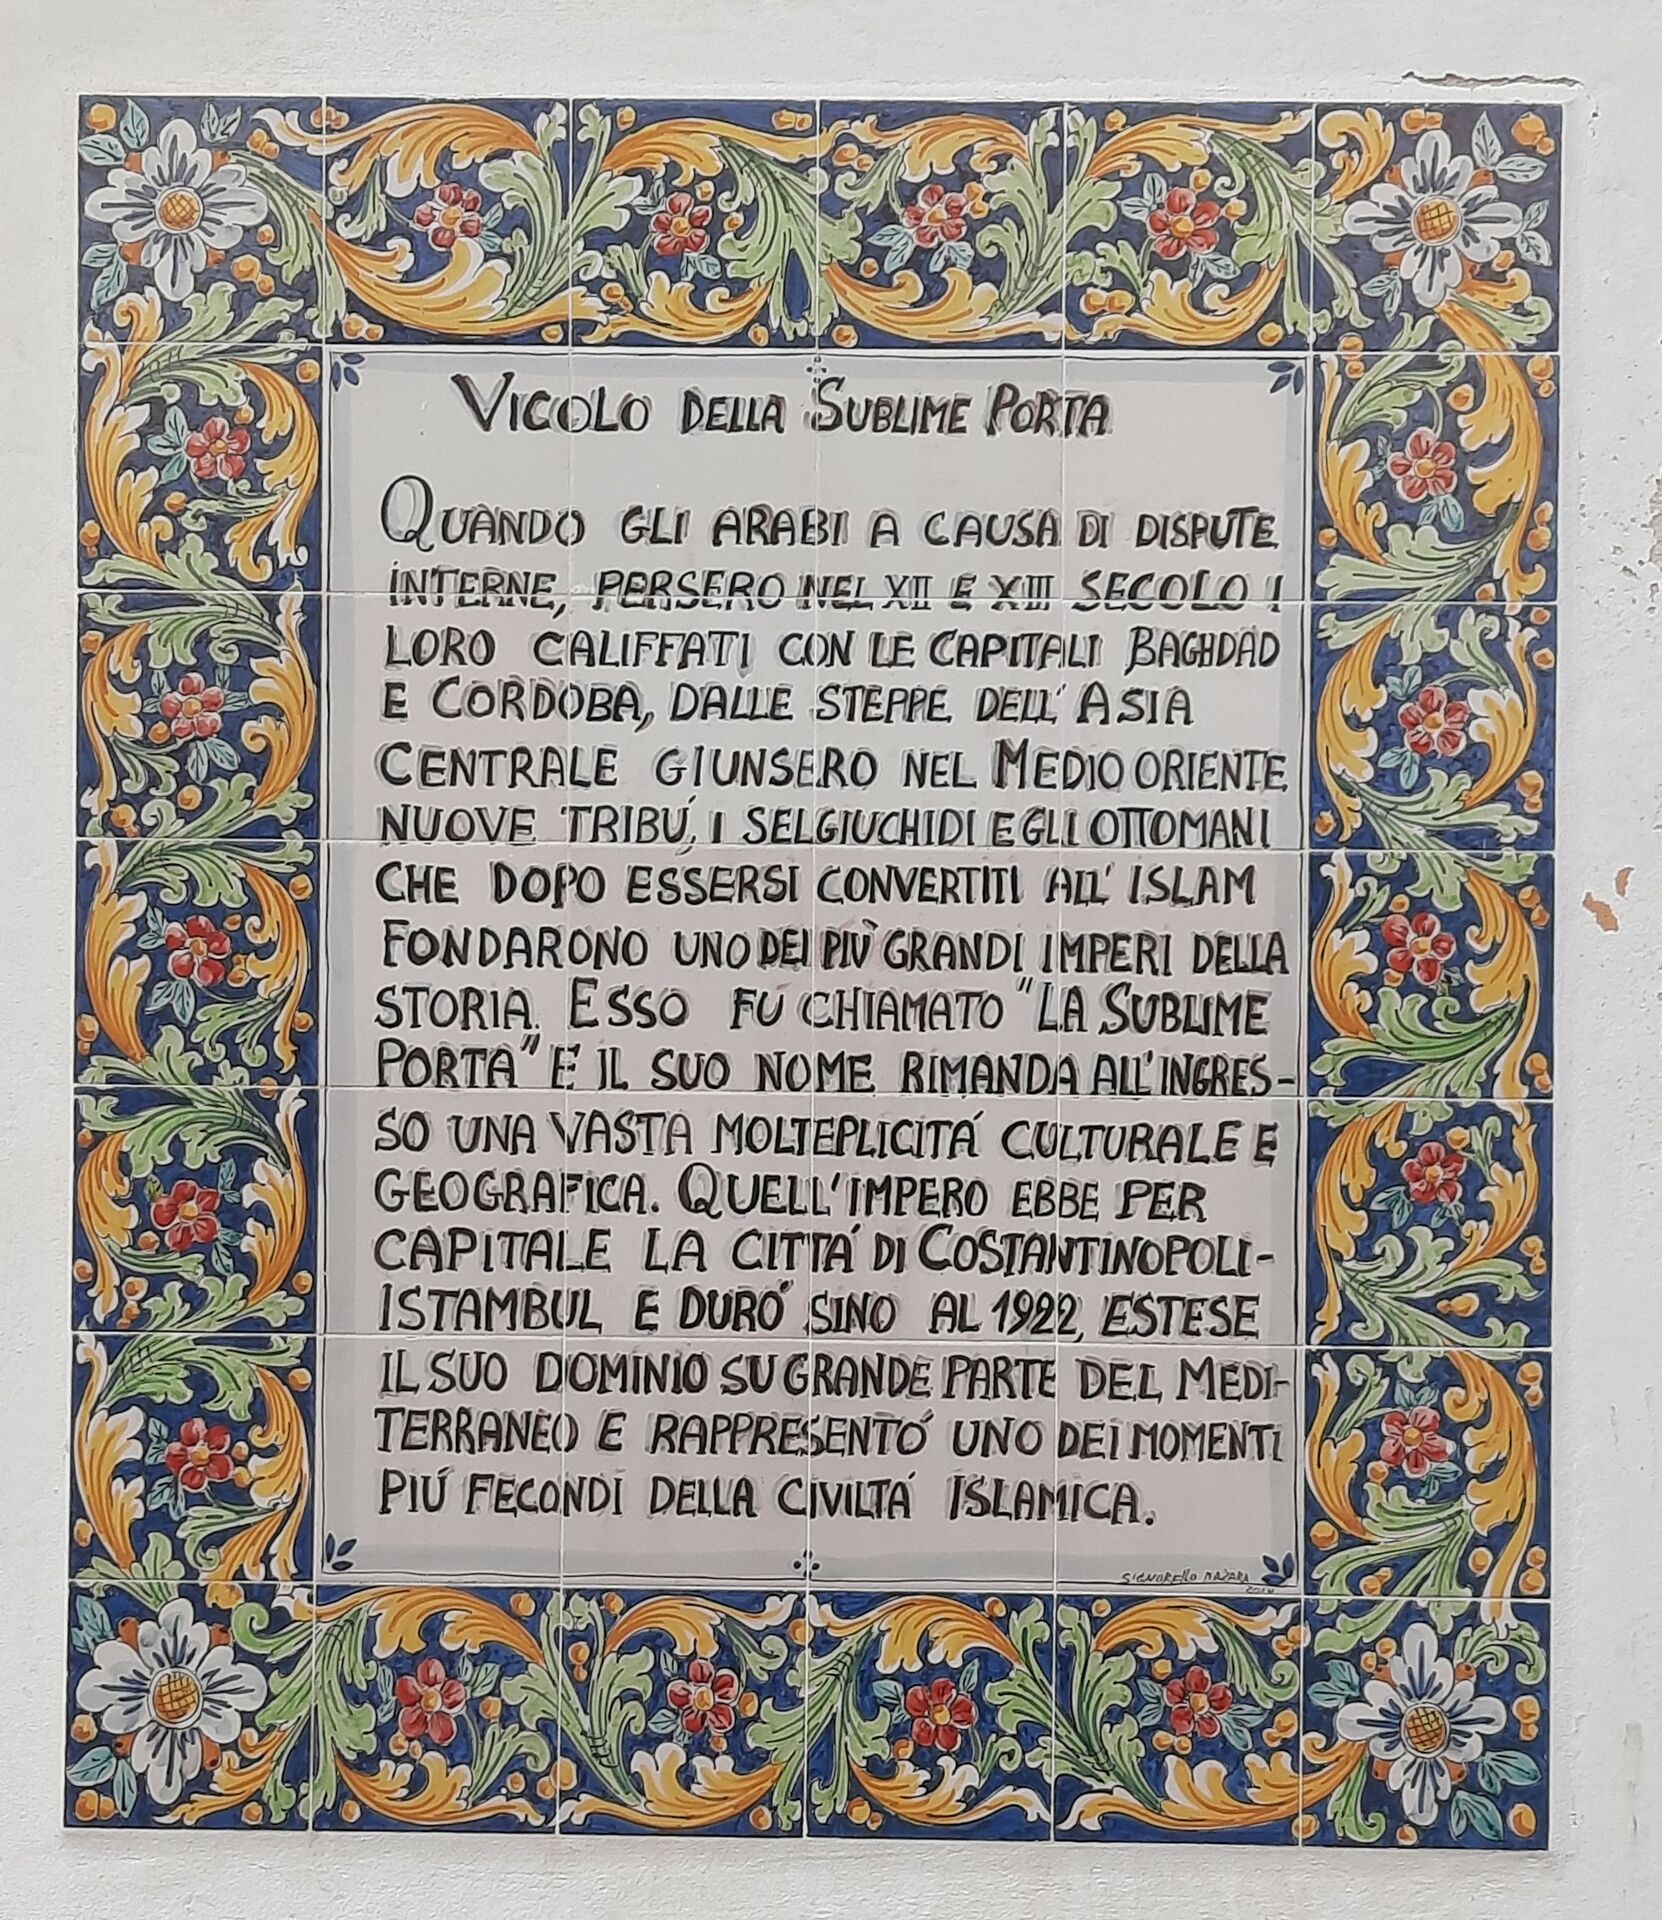 VICOLO DELLA SUBLIME PORTA
QUANDO GLI ARABI A CAUSA DI DISPUTE
INTERNE, PERSERO NEL XII E XIII SECOLO I
LORO CALIFFATI CON LE CAPITALI BAGHDAD
E CORDOBA, DALLE STEPPE DELL' ASIA
CENTRALE GIUNSERO NEL MEDIO ORIENTE
NUOVE TRIBÚ, I SELGIUCHIDI E GLI OTTOMANI
CHE DOPO ESSERSI CONVERTITI ALL' ISLAM
FONDARONO UNO DEI PIÙ GRANDI IMPERI DELLA
STORIA. ESSO FU CHIAMATO "LA SUBLIME
PORTA" E IL SUO NOME RIMANDA ALL'INGRES-
SO UNA VASTA MOLTEPLICITÁ CULTURALE E
GEOGRAFICA. QUELL'IMPERO EBBE PER
CAPITALE LA CITTÁ DI COSTANTINOPOLI-
ISTAMBUL E DURÓ SINO AL 1922, ESTESE
IL SUO DOMINIO SU GRANDE PARTE DEL MEDI-
TERRANEO E RAPPRESENTÓ UNO DEI MOMENTI
PIÚ FECONDI DELLA CIVILTÁ ISLAMICA.
SIGNORELLO MAZARA